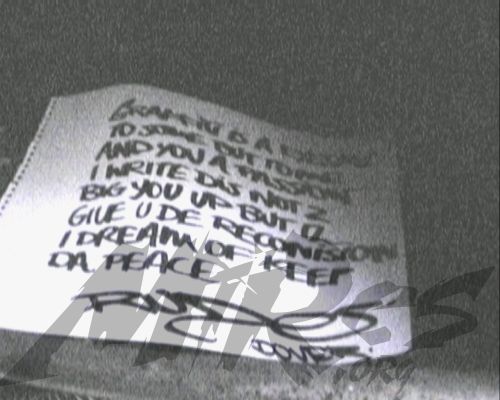 GRAFFITI IS A
TO SOME BUT TO ME
AND YOU A PASSION
I WRITE DIS NOT 2
BIG YOU UP BUT 2
GIVE U DE RECONISTION
I DREAM OF KEEP
DA PEACE